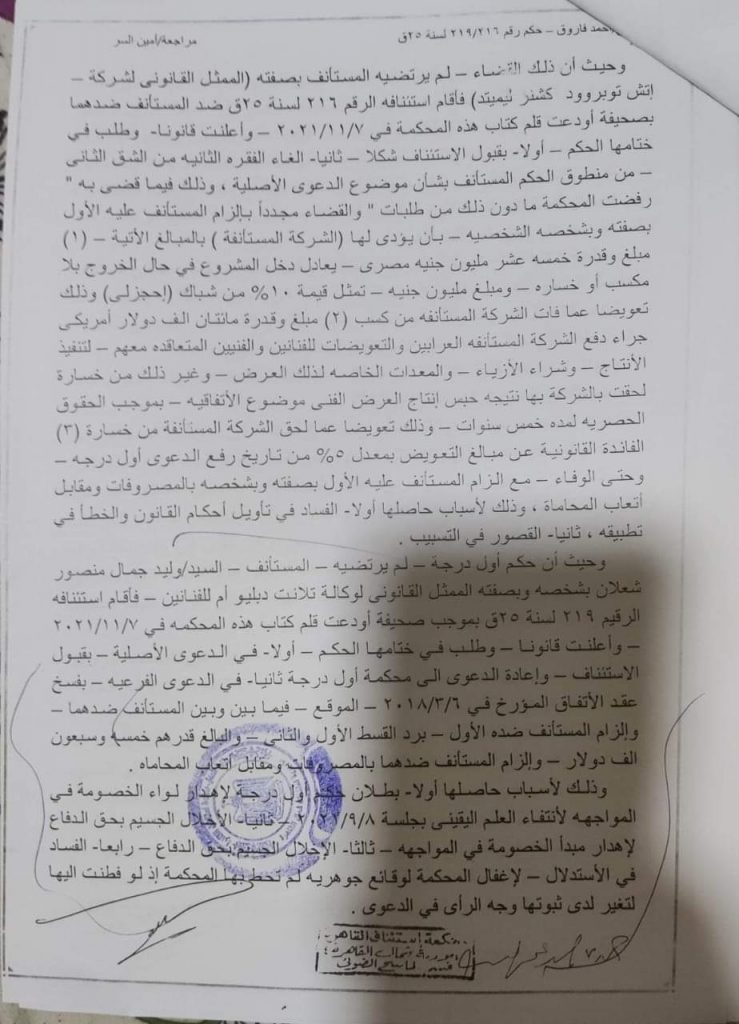 أحمد فاروق – حكم رقم ٢١٩/٢١٦ لسنة ٢٥ق
مراجعة/أمين السر
وحيث أن ذلك القضاء – لم يرتضيه المستأنف بصفته (الممثل القانونى لشركة –
إتش توبروود كشنز ليميتد) فأقام استئنافه الرقم ٢١٦ لسنة ٢٥ق ضد المستأنف ضدهما
بصحيفة أودعت قلم كتاب هذه المحكمة في ٢٠٢١/١١/٧ – وأعلنت قانونا- وطلب في
ختامها الحكم – أولا- بقبول الاستئناف شكلا – ثانيا- الغاء الفقره الثانيه من الشق الثانى
– من منطوق الحكم المستأنف بشأن موضوع الدعوى الأصلية ، وذلك فيما قضى به "
رفضت المحكمة ما دون ذلك من طلبات " والقضاء مجدداً بإلزام المستأنف عليه الأول
بصفته وبشخصه الشخصيه – بأن يؤدى لها (الشركة المستأنفة ) بالمبالغ الأتية – (١)
مبلغ وقدرة خمسه عشر مليون جنيه مصرى – يعادل دخل المشروع في حال الخروج بلا
مكسب أو خساره – ومبلغ مليون جنيه – تمثل قيمة ١٠% من شباك (إحجزلى) وذلك
تعويضا عما فات الشركة المستأنفه من كسب (٢) مبلغ وقدرة مائتان الف دولار أمريكى
جراء دفع الشركة المستأنفه العرابين والتعويضات للفنانين والفنيين المتعاقده معهم – لتنفيذ
الأنتاج – وشراء الأزياء – والمعدات الخاصه لذلك العرض – وغير ذلك من خسارة
لحقت بالشركة بها نتيجه حبس إنتاج العرض الفنى موضوع الأتفاقيه – بموجب الحقوق
الحصريه لمده خمس سنوات – وذلك تعويضا عما لحق الشركة المستأنفة من خسارة (٣)
الفائدة القانونية عن مبالغ التعويض بمعدل ٥% من تاريخ رفع الدعوى أول درجه –
وحتى الوفاء – مع الزام المستأنف عليه الأول بصفته وبشخصه بالمصروفات ومقابل
أتعاب المحاماة ، وذلك لأسباب حاصلها أولا- الفساد في تأويل أحكام القانون والخطأ في
تطبيقه ، ثانيا- القصور في التسبيب .
وحيث أن حكم أول درجة – لم يرتضيه – المستأنف – السيد/وليد جمال منصور
شعلان بشخصه وبصفته الممثل القانونى لوكالة تلانت دبليو أم للفنانين – فأقام استئنافه
الرقيم ٢١٩ لسنة ٢٥ق بموجب صحيفة أودعت قلم كتاب هذه المحكمه في ٢٠٢١/١١/٧
– وأعلنت قانونا – وطلب في ختامها الحكم – أولا- في الدعوى الأصلية – بقبول
الاستئناف – وإعادة الدعوى الى محكمة أول درجة ثانيا- في الدعوى الفرعيه – بفسخ
عقد الأتفاق المؤرخ في ٢٠١٨/٣/٦ – الموقع – فيما بين وبين المستأنف ضدهما –
وإلزام المستأنف ضده الأول – برد القسط الأول والثانى – والبالغ قدرهم خمسه وسبعون
الف دولار – وإلزام المستأنف ضدهما بالمصروفات ومقابل أتعاب المحاماه .
وذلك لأسباب حاصلها أولا- بطلان حكم أول درجة لإهدار لواء الخصومة في
المواجهه لأنتفاء العلم اليقينى بجلسة ٢٠٢١/٩/٨ – ثانيا- الأخلال الجسيم بحق الدفاع
لإهدار مبدأ الخصومة في المواجهه – ثالثا- الإخلال الجسيم بحق الدفاع – رابعا- الفساد
في الأستدلال – لإغفال المحكمة لوقائع جوهريه لم تحط بها المحكمة إذ لو فطنت اليها
لتغير لدى ثبوتها وجه الرأى في الدعوى .
محكمة إستئناف القاهرة
مأمورية شمال القاهرة